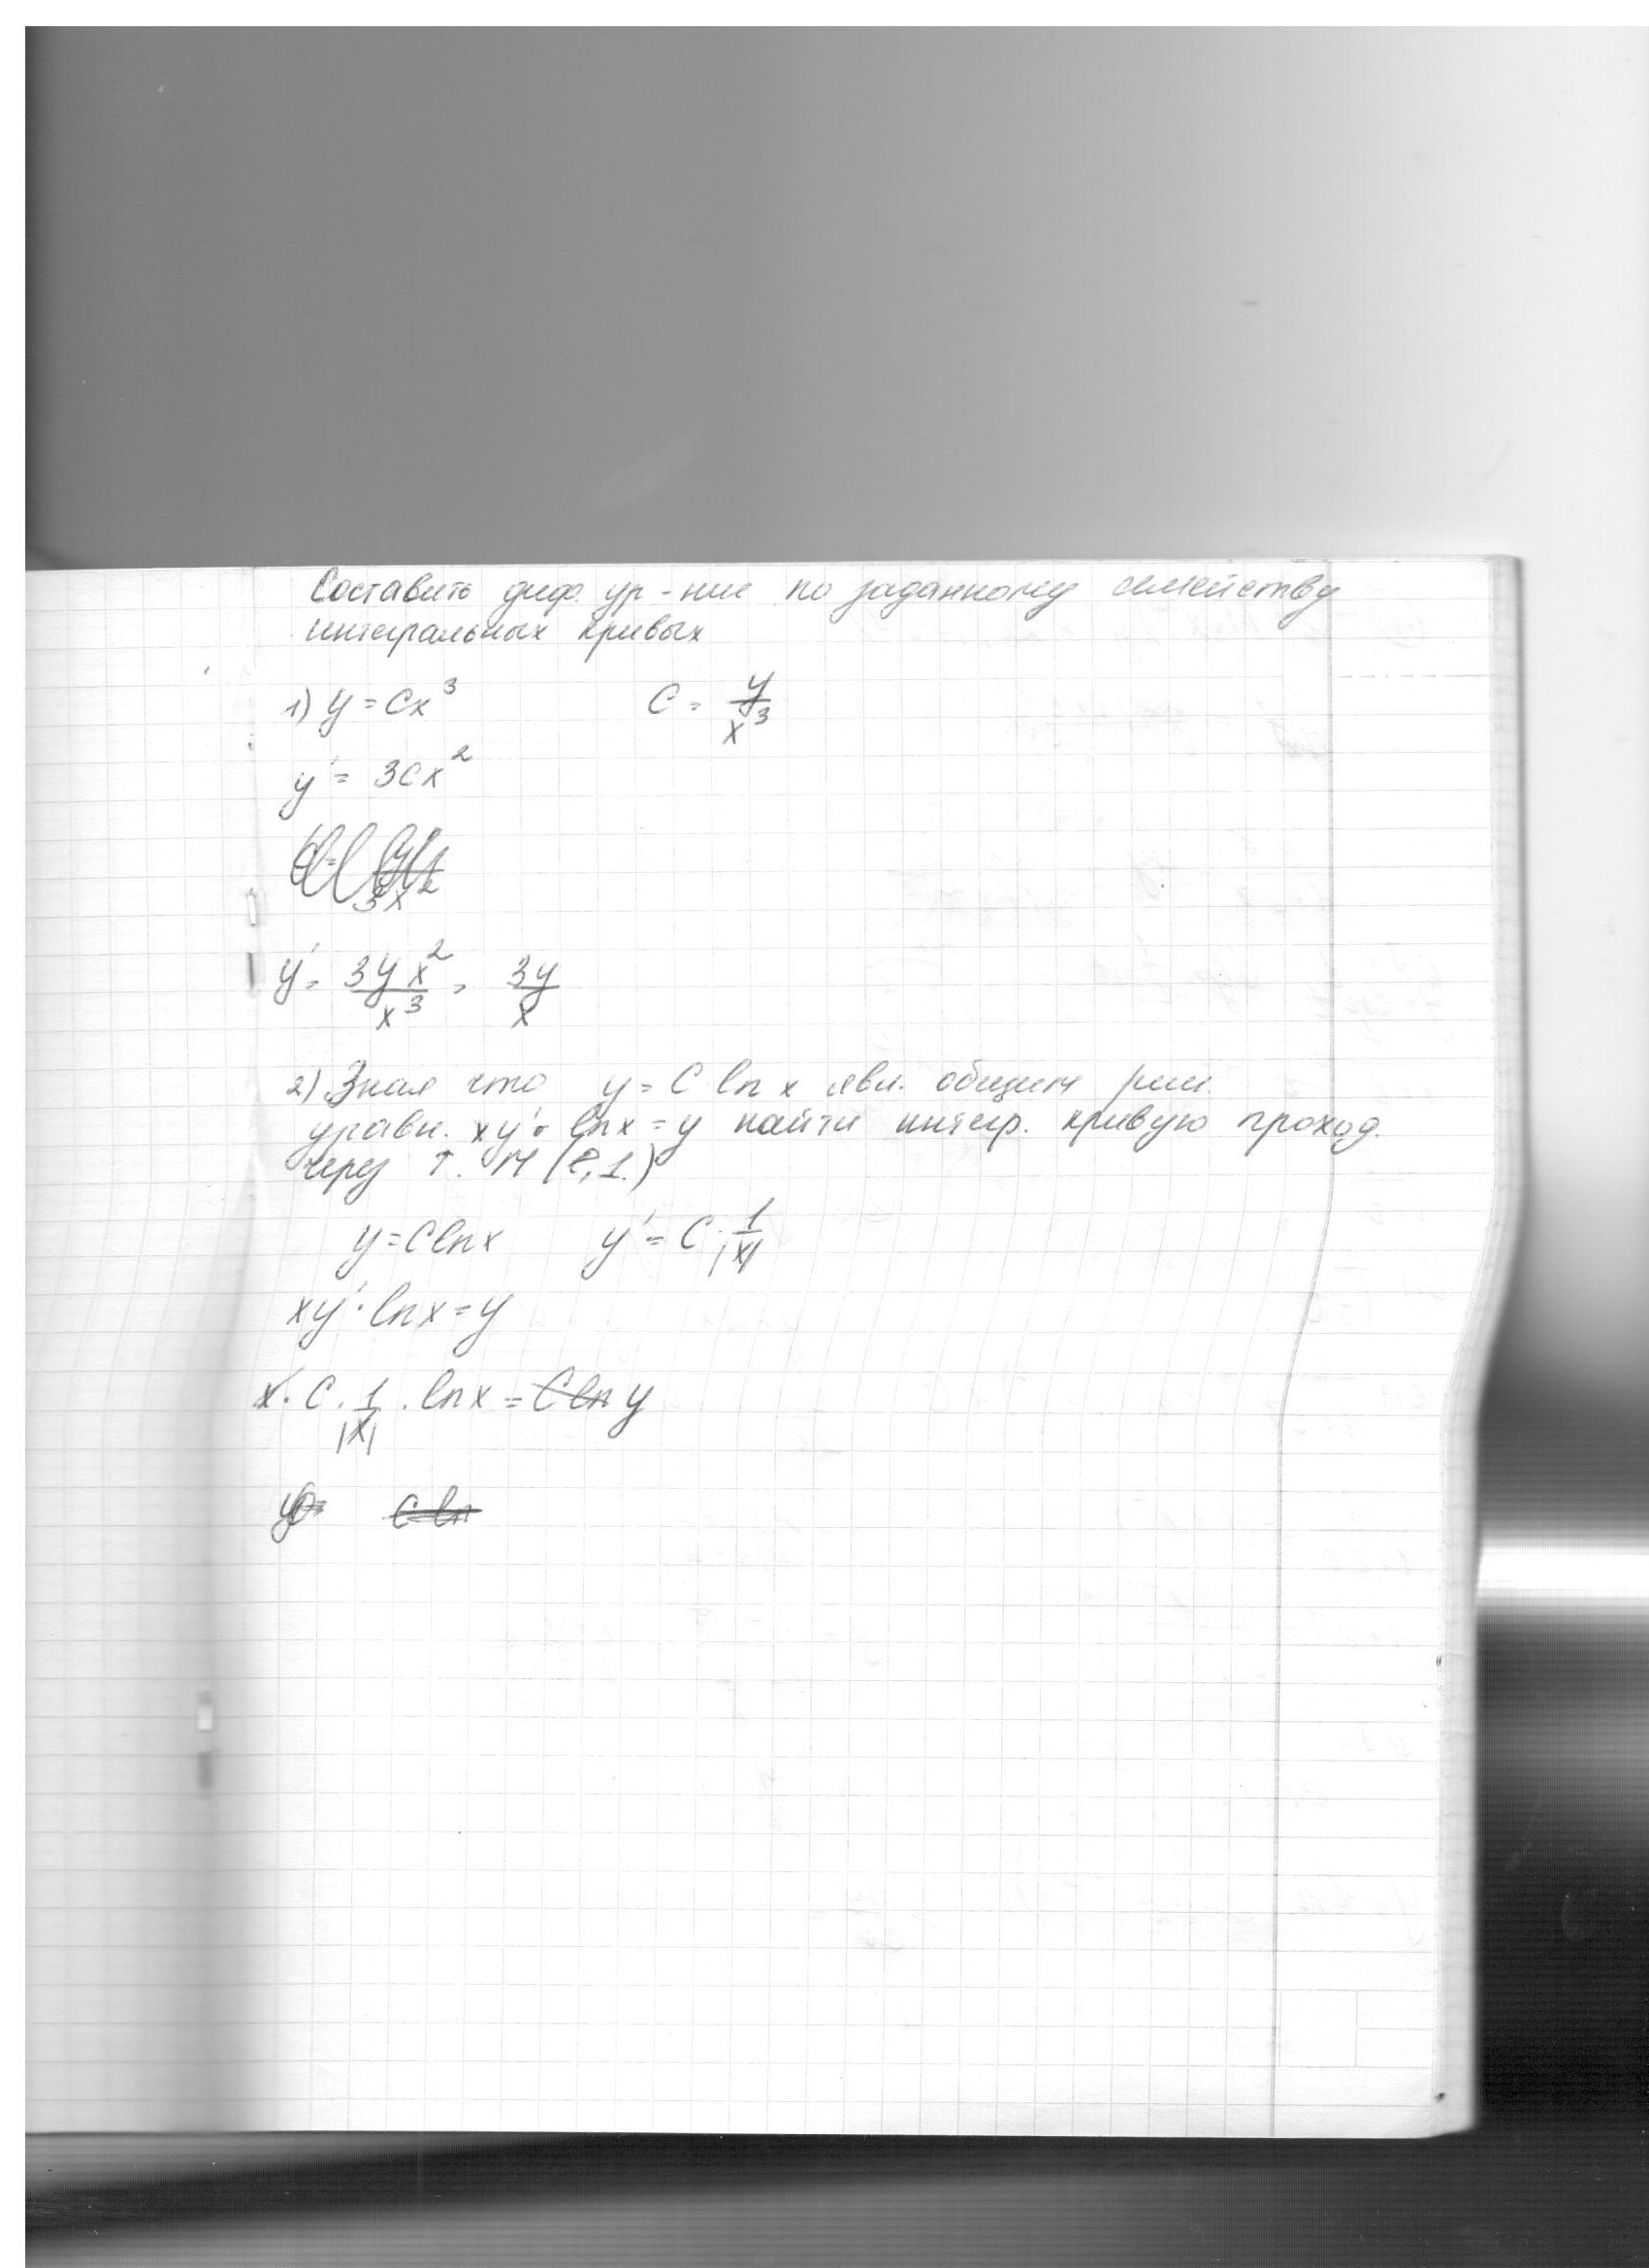 Составить диф. ур-ние по заданному семейству
интегральных кривых
1) y = Cx³ C = y/x³
y' = 3Cx²
3x²
y' = 3y x²/x³ = 3y/x
2) Зная что y = C ln x явл. общим реш.
уравн. xy' · ln x = y найти интегр. кривую проход.
через т. M (e, 1.)
y = C ln x y' = C · 1/|x|
xy' · ln x = y
x · C · 1/|x| · ln x = C ln y
y = C ln